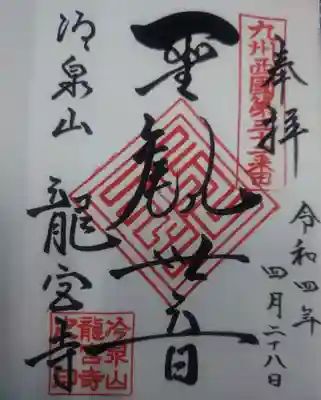 奉拝
令和四年
四月二十八日
九州西國第三十二番
聖観世音
冷泉山
龍宮寺
冷泉山
龍宮寺
之印